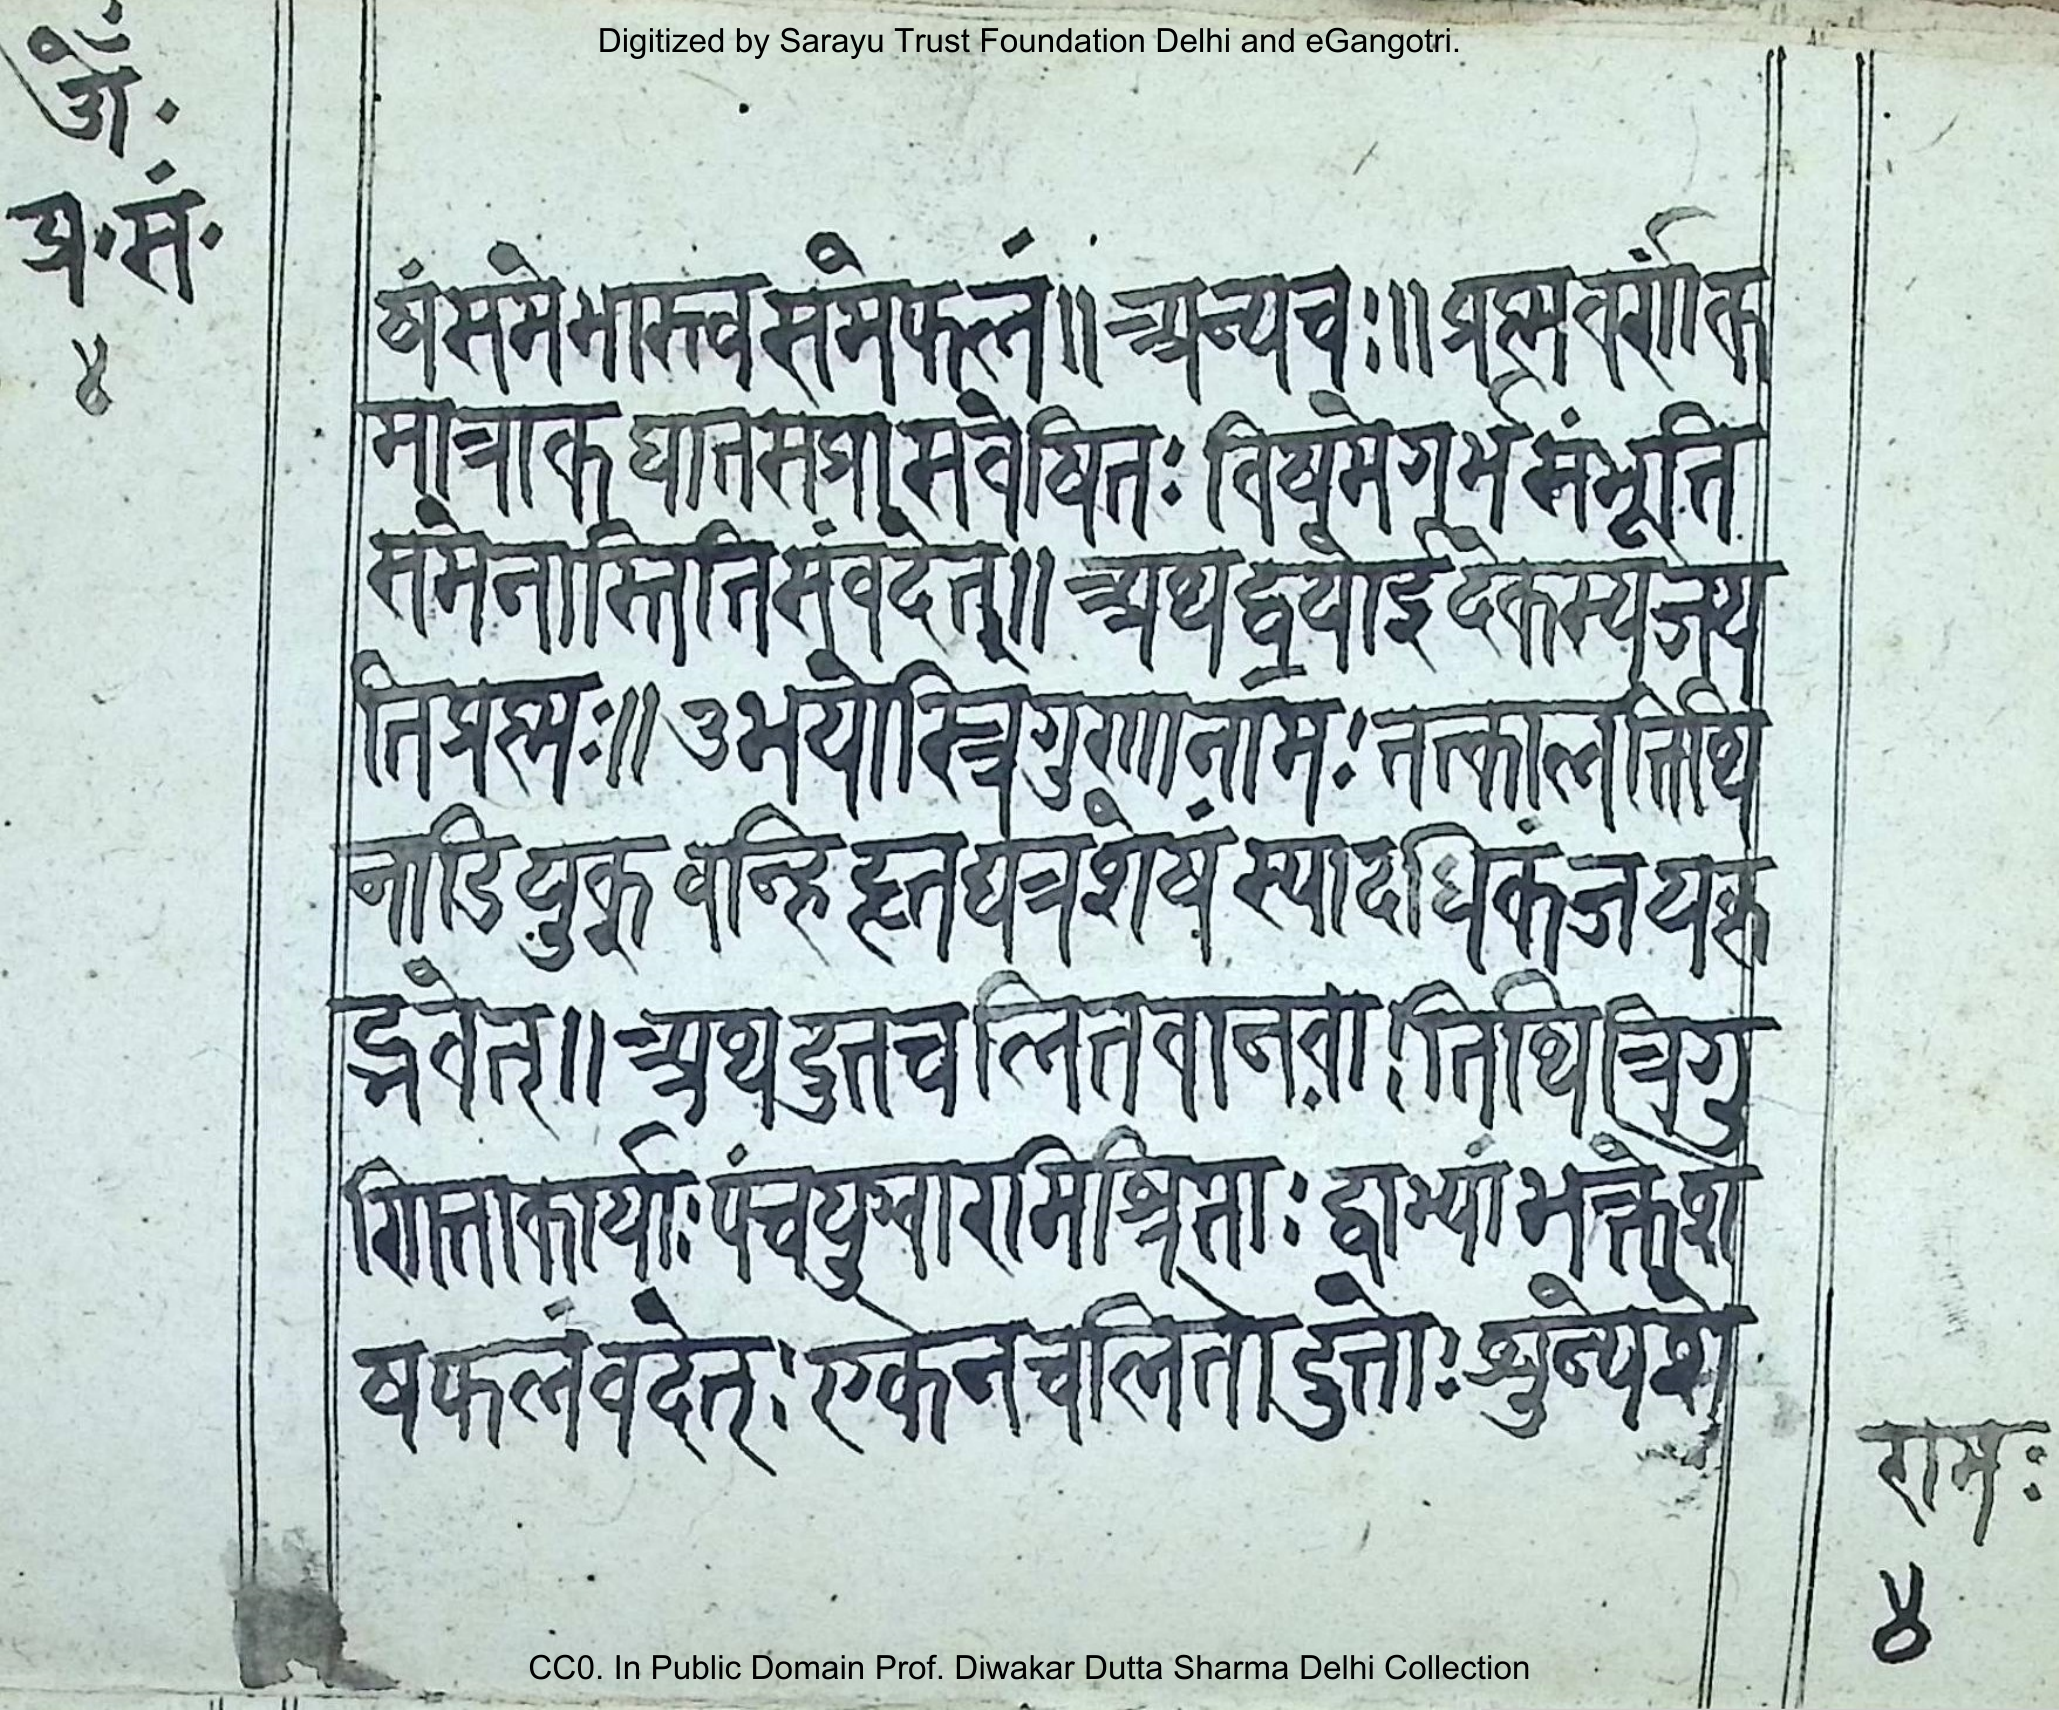 Digitized by Sarayu Trust Foundation Delhi and eGangotri.
ॐ·
प्र·सं·
४
समेभास्त्वसमेफलं॥ अन्यच्च:॥ प्रश्नवर्णांक
मात्रांक घात सप्रा सवेषित: विषमेगर्भसंभूति
समेनास्तितिसंवदेत्॥ अथद्वयोर्ई देकस्यजय
तिप्रश्नः॥ उभयोस्त्रिगुणानाम: तत्कालतिथि
नाडियुक् वन्हिहृतद्यत्रशेषं स्यादधिकंजयक
द्भवेत्॥ अथदुतचलितवानवा:तिथित्रिगु
णिताकार्याः पंचयुग्वारमिश्रिताः द्वाभ्यांभक्तेशे
षफलंवदेत्: एकेनचलितोदुतो: शुन्येशे
रामः
४
CC0. In Public Domain Prof. Diwakar Dutta Sharma Delhi Collection